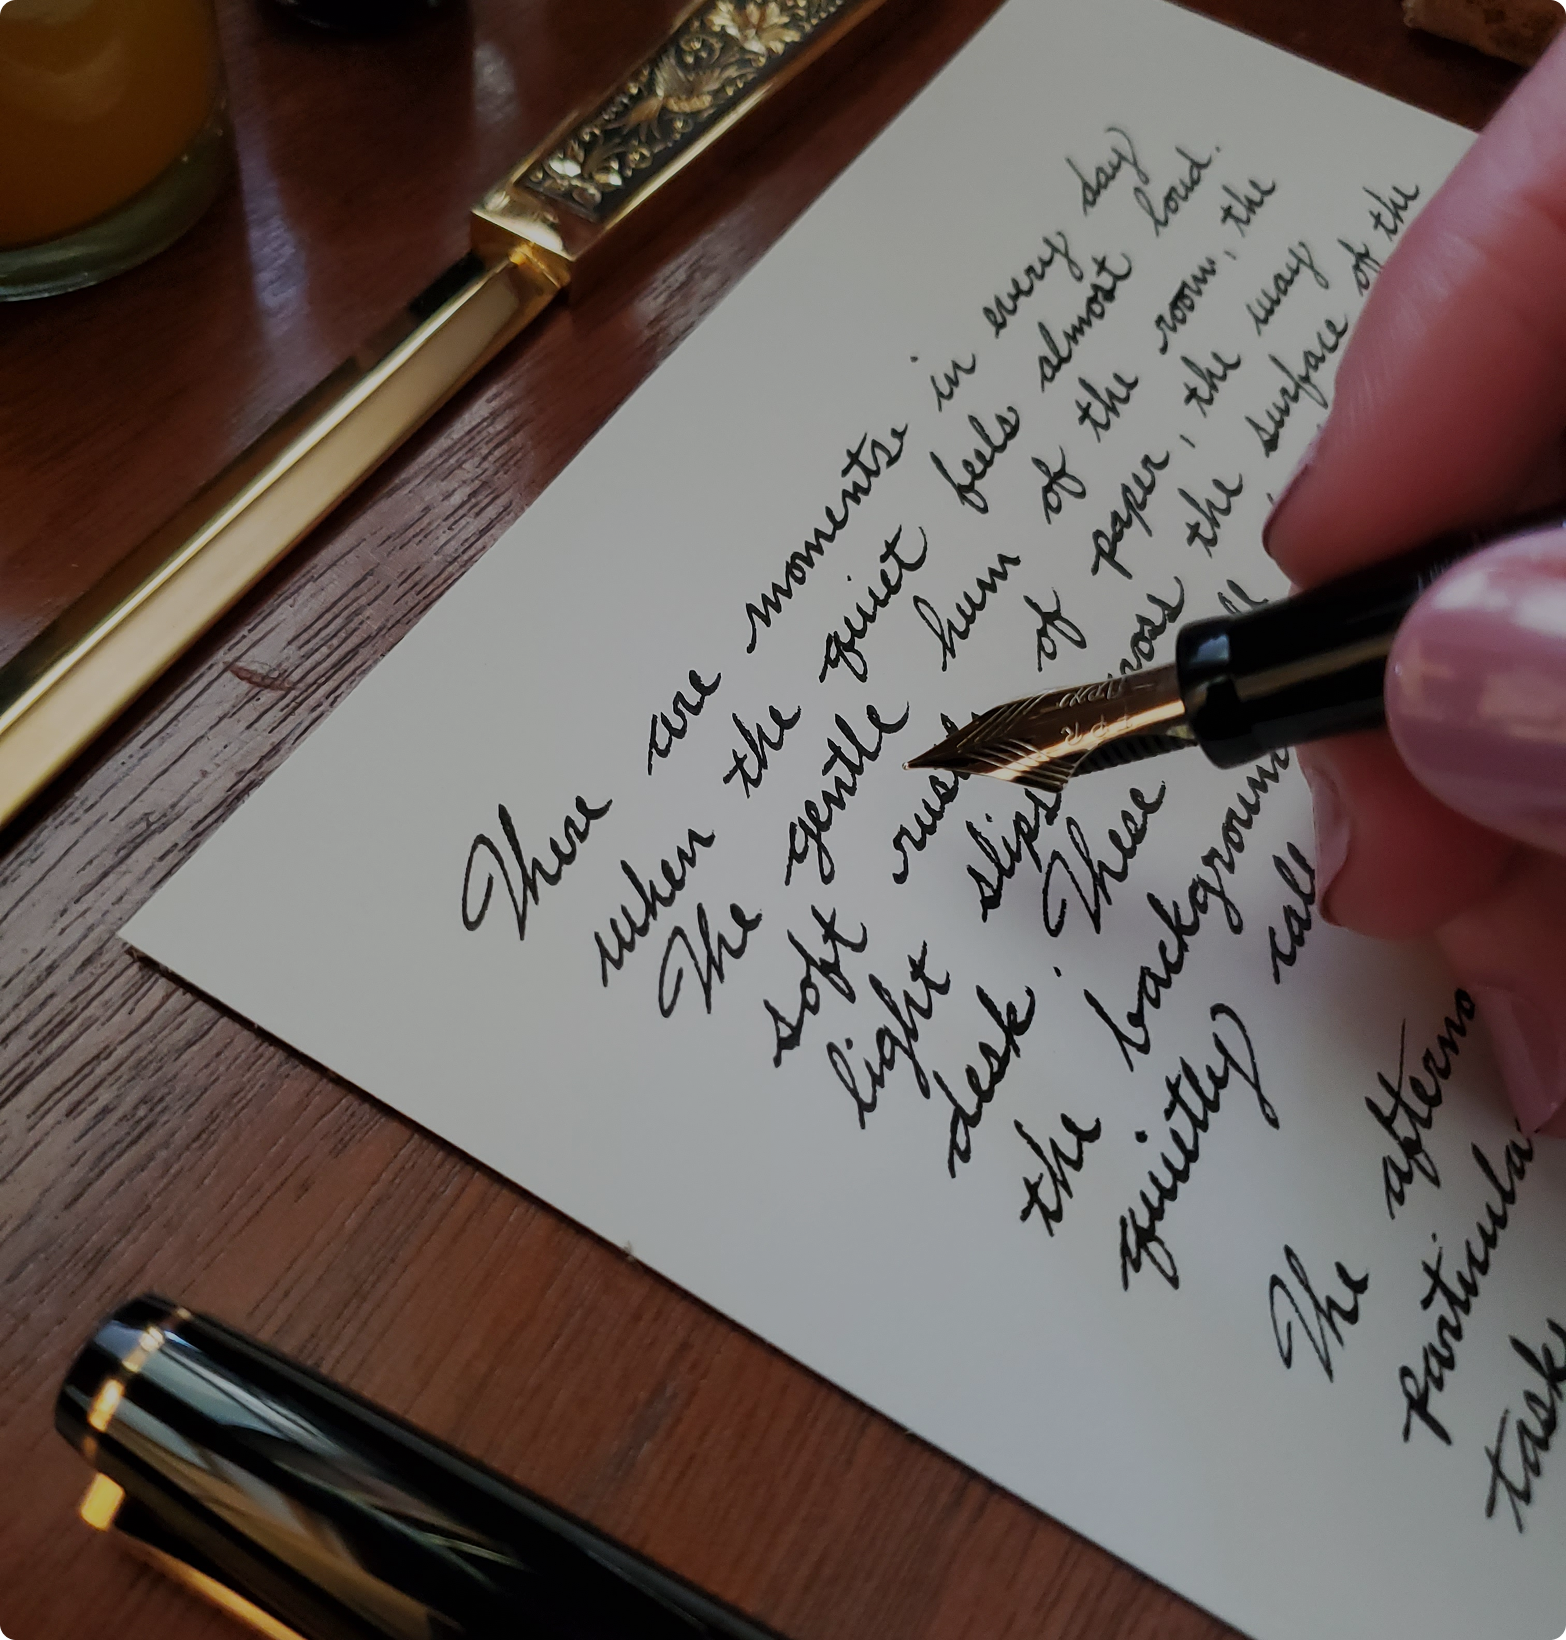 There are moments in every day
when the quiet feels almost loud.
The gentle hum of the room, the
soft of paper, the way
light slips the surface of the
desk. These
the background
quietly
The
task